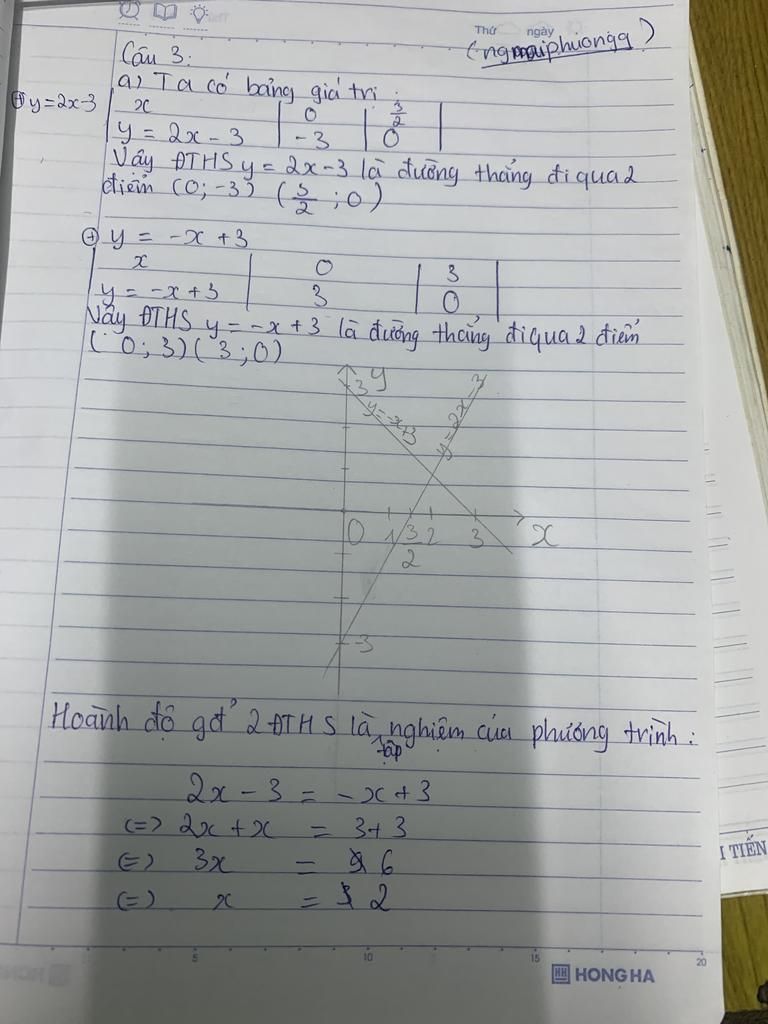 Thứ ngày
(ngmaiphuongg)
Câu 3:
a) Ta có bảng giá trị:
⊕ y=2x-3
x | 0 | 3/2
y = 2x - 3 | -3 | 0
Vậy ĐTHS y = 2x-3 là đường thẳng đi qua 2
điểm (0; -3) (3/2 ; 0)
⊕ y = -x + 3
x | 0 | 3
y = -x+3 | 3 | 0
Vậy ĐTHS y = -x + 3 là đường thẳng đi qua 2 điểm
( 0 ; 3) ( 3 ; 0)
y
3
y=-x+3
y = 2x - 3
0 1 3/2 2 3 x
-3
Hoành độ gđ 2 ĐTHS là tập nghiệm của phương trình:
2x - 3 = -x + 3
(=) 2x + x = 3+3
(=) 3x = 6
(=) x = 2
5 10 15 20
HH HONG HA
HONG HA
I TIẾN